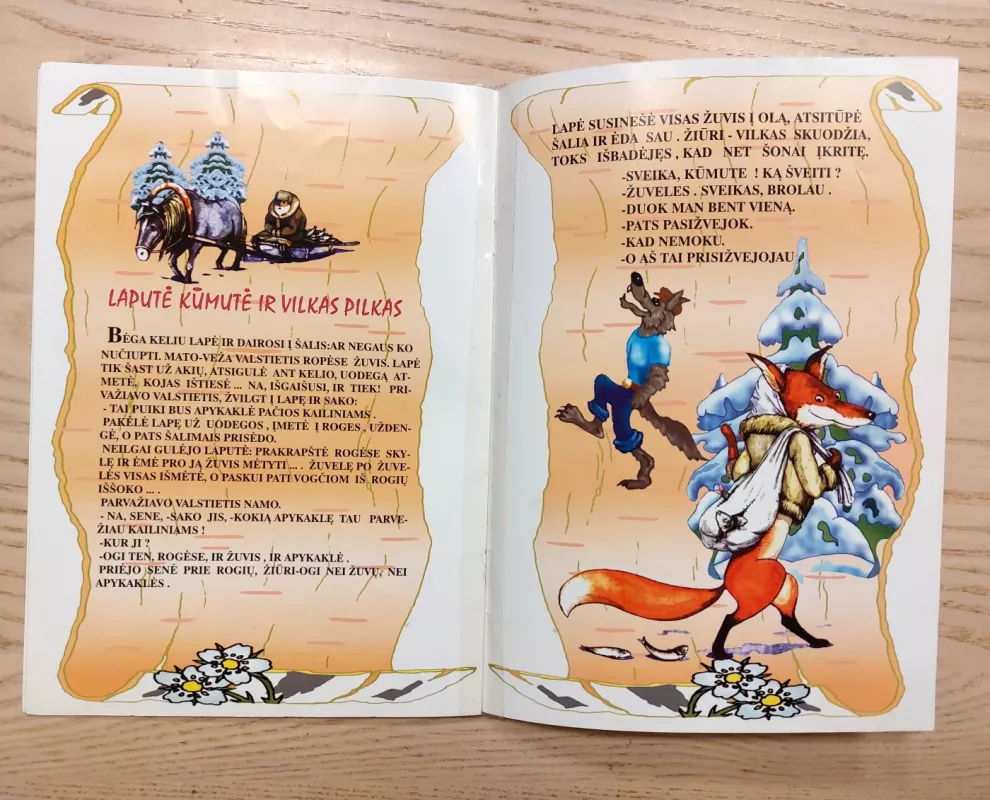 LAPUTĖ KŪMUTĖ IR VILKAS PILKAS
BĖGA KELIU LAPĖ IR DAIROSI Į ŠALIS:AR NEGAUS KO
NUČIUPTI. MATO-VEŽA VALSTIETIS ROPĖSE ŽUVIS. LAPĖ
TIK ŠAST UŽ AKIŲ, ATSIGULĖ ANT KELIO, UODEGĄ AT-
METĖ, KOJAS IŠTIESĖ ... NA, IŠGAIŠUSI, IR TIEK! PRI-
VAŽIAVO VALSTIETIS, ŽVILGT Į LAPĘ IR SAKO:
- TAI PUIKI BUS APYKAKLĖ PAČIOS KAILINIAMS .
PAKĖLĖ LAPĘ UŽ UODEGOS , ĮMETĖ Į ROGES , UŽDEN-
GĖ, O PATS ŠALIMAIS PRISĖDO.
NEILGAI GULĖJO LAPUTĖ: PRAKRAPŠTĖ ROGĖSE SKY-
LĘ IR ĖMĖ PRO JĄ ŽUVIS MĖTYTI ... . ŽUVELĘ PO ŽUVE-
LĖS VISAS IŠMĖTĖ, O PASKUI PATI VOGČIOM IŠ ROGIŲ
IŠŠOKO ... .
PARVAŽIAVO VALSTIETIS NAMO.
- NA, SENE, -SAKO JIS, -KOKIĄ APYKAKLĘ TAU PARVE-
ŽIAU KAILINIAMS !
-KUR JI ?
-OGI TEN, ROGĖSE, IR ŽUVIS , IR APYKAKLĖ .
PRIĖJO SENĖ PRIE ROGIŲ, ŽIŪRI-OGI NEI ŽUVŲ, NEI
APYKAKLĖS .
LAPĖ SUSINEŠĖ VISAS ŽUVIS Į OLĄ, ATSITŪPĖ
ŠALIA IR ĖDA SAU . ŽIŪRI - VILKAS SKUODŽIA,
TOKS IŠBADĖJĘS , KAD NET ŠONAI ĮKRITĘ.
-SVEIKA, KŪMUTE ! KĄ ŠVEITI ?
-ŽUVELES . SVEIKAS, BROLAU .
-DUOK MAN BENT VIENĄ.
-PATS PASIŽVEJOK.
-KAD NEMOKU.
-O AŠ TAI PRISIŽVEJOJAU